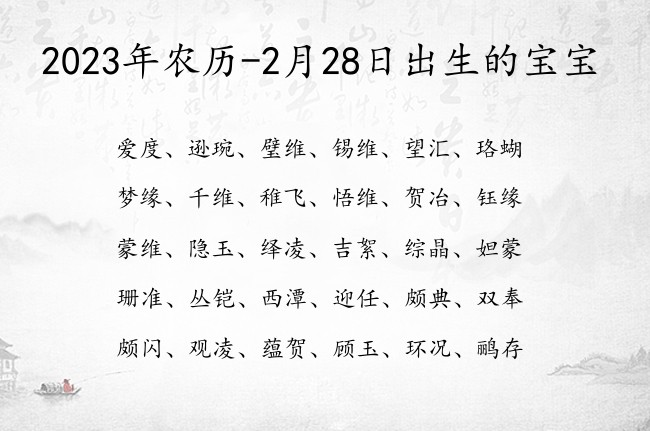 2023年农历-2月28日出生的宝宝
爱度、逊琬、璧维、锡维、望汇、珞蝴
梦缘、千维、稚飞、悟维、贺冶、钰缘
蒙维、隐玉、绎凌、吉絮、综晶、妲蒙
珊准、丛铠、西潭、迎任、颇典、双奉
颇闪、观凌、蕴贺、顾玉、环况、鹂存